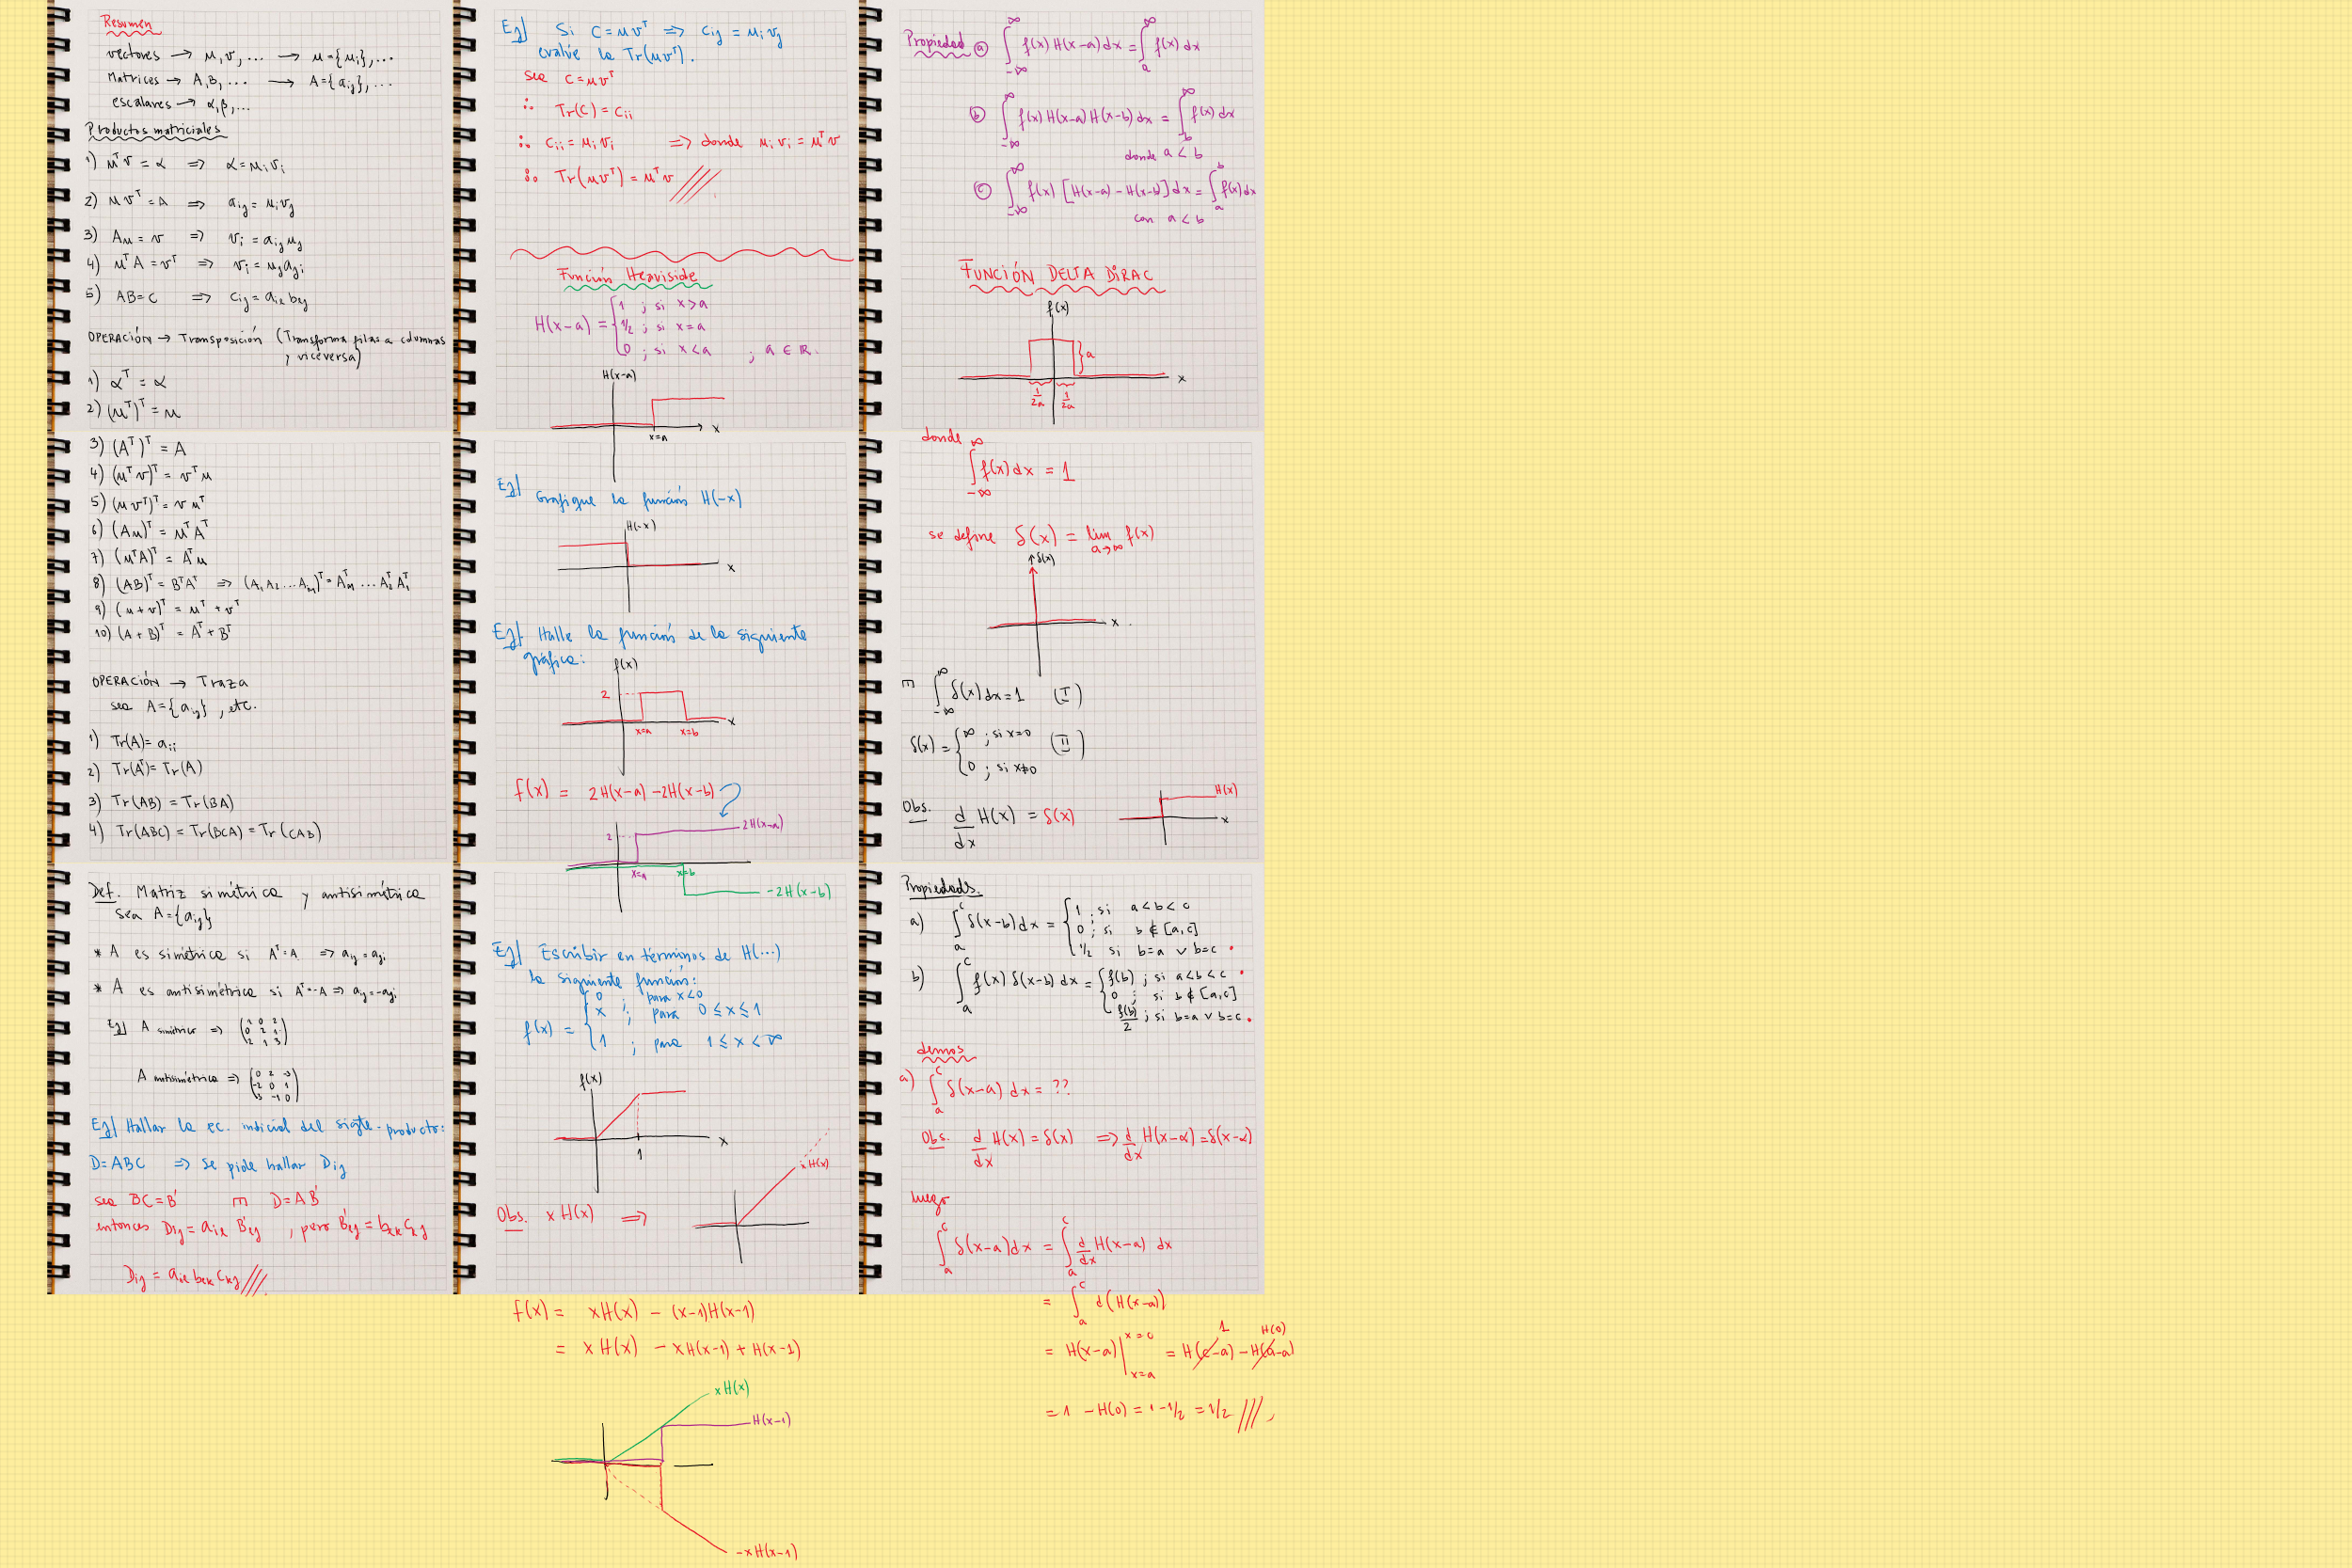 Resumen
vectores → u, v, ... → u = {uᵢ}, ...
Matrices → A, B, ... → A = {aᵢⱼ}, ...
escalares → α, β, ...
Productos matriciales
1) uᵀv = α ⇒ α = uᵢvᵢ
2) uvᵀ = A ⇒ aᵢⱼ = uᵢvⱼ
3) Au = v ⇒ vᵢ = aᵢⱼuⱼ
4) uᵀA = vᵀ ⇒ vᵢ = uⱼaⱼᵢ
5) AB = C ⇒ cᵢⱼ = aᵢₖbₖⱼ
OPERACIÓN → Transposición (Transforma filas a columnas
y viceversa)
1) αᵀ = α
2) (uᵀ)ᵀ = u
3) (Aᵀ)ᵀ = A
4) (uᵀv)ᵀ = vᵀu
5) (uvᵀ)ᵀ = vuᵀ
6) (Au)ᵀ = uᵀAᵀ
7) (uᵀA)ᵀ = Aᵀu
8) (AB)ᵀ = BᵀAᵀ ⇒ (A₁A₂...Aₘ)ᵀ = Aₘᵀ...A₂ᵀA₁ᵀ
9) (u+v)ᵀ = uᵀ + vᵀ
10) (A+B)ᵀ = Aᵀ + Bᵀ
OPERACIÓN → Traza
sea A = {aᵢⱼ}, etc.
1) Tr(A) = aᵢᵢ
2) Tr(Aᵀ) = Tr(A)
3) Tr(AB) = Tr(BA)
4) Tr(ABC) = Tr(BCA) = Tr(CAB)
Def. Matriz simétrica y antisimétrica
sea A = {aᵢⱼ}
* A es simétrica si Aᵀ = A ⇒ aᵢⱼ = aⱼᵢ
* A es antisimétrica si Aᵀ = -A ⇒ aᵢⱼ = -aⱼᵢ
Ej| A simétrica ⇒
1 0 2
0 2 1
2 1 3
A antisimétrica ⇒
0 2 -3
-2 0 1
3 -1 0
Ej| Hallar la ec. indicial del sigte. producto:
D = ABC ⇒ se pide hallar Dᵢⱼ
sea BC = B' ⇒ D = AB'
entonces Dᵢⱼ = aᵢₗ B'ₗⱼ , pero B'ₗⱼ = bₗₖcₖⱼ
Dᵢⱼ = aᵢₗ bₗₖ cₖⱼ ///
Ej| Si C = uvᵀ ⇒ cᵢⱼ = uᵢvⱼ
evalúe la Tr(uvᵀ).
sea C = uvᵀ
∴ Tr(C) = cᵢᵢ
∴ cᵢᵢ = uᵢvᵢ ⇒ donde uᵢvᵢ = uᵀv
∴ Tr(uvᵀ) = uᵀv ///
Función Heaviside
H(x-a) =
1 ; si x > a
1/2 ; si x = a
0 ; si x < a ; a ∈ ℝ.
H(x-a)
x=a x
Ej| Grafique la función H(-x)
H(-x)
x
Ej| Halle la función de la siguiente
gráfica:
f(x)
2
x=a x=b x
f(x) = 2H(x-a) - 2H(x-b)
2 2H(x-a)
x=a x=b
-2H(x-b)
Ej| Escribir en términos de H(...)
la siguiente función:
f(x) =
0 ; para x<0
x ; para 0 ≤ x ≤ 1
1 ; para 1 ≤ x < ∞
f(x)
1 x
Obs. xH(x) ⇒
xH(x)
f(x) = xH(x) - (x-1)H(x-1)
= xH(x) - xH(x-1) + H(x-1)
xH(x)
H(x-1)
-xH(x-1)
Propiedad ⓐ ∫_{-∞}^{∞} f(x) H(x-a) dx = ∫_a^∞ f(x) dx
ⓑ ∫_{-∞}^{∞} f(x) H(x-a) H(x-b) dx = ∫_b^∞ f(x) dx
donde a < b
ⓒ ∫_{-∞}^{∞} f(x) [H(x-a) - H(x-b)] dx = ∫_a^b f(x) dx
con a < b
FUNCIÓN DELTA DIRAC
f(x)
a
x
1/2a 1/2a
donde
∫_{-∞}^{∞} f(x) dx = 1
se define δ(x) = lim_{a→∞} f(x)
δ(x)
x
⇒ ∫_{-∞}^{∞} δ(x) dx = 1 (I)
δ(x) =
∞ ; si x=0 (II)
0 ; si x≠0
Obs. d/dx H(x) = δ(x)
H(x)
x
Propiedads.
a) ∫_a^c δ(x-b) dx =
1 ; si a < b < c
0 ; si b ∉ [a,c]
1/2 si b=a ∨ b=c
b) ∫_a^c f(x) δ(x-b) dx =
f(b) ; si a<b<c
0 ; si b ∉ [a,c]
f(b)/2 ; si b=a ∨ b=c
demos
a) ∫_a^c δ(x-a) dx = ??
Obs. d/dx H(x) = δ(x) ⇒ d/dx H(x-α) = δ(x-α)
luego
∫_a^c δ(x-a) dx = ∫_a^c d/dx H(x-a) dx
= ∫_a^c d(H(x-a))
= H(x-a) |_{x=a}^{x=c} = H(c-a) - H(a-a)
1 H(0)
= 1 - H(0) = 1 - 1/2 = 1/2 ///,